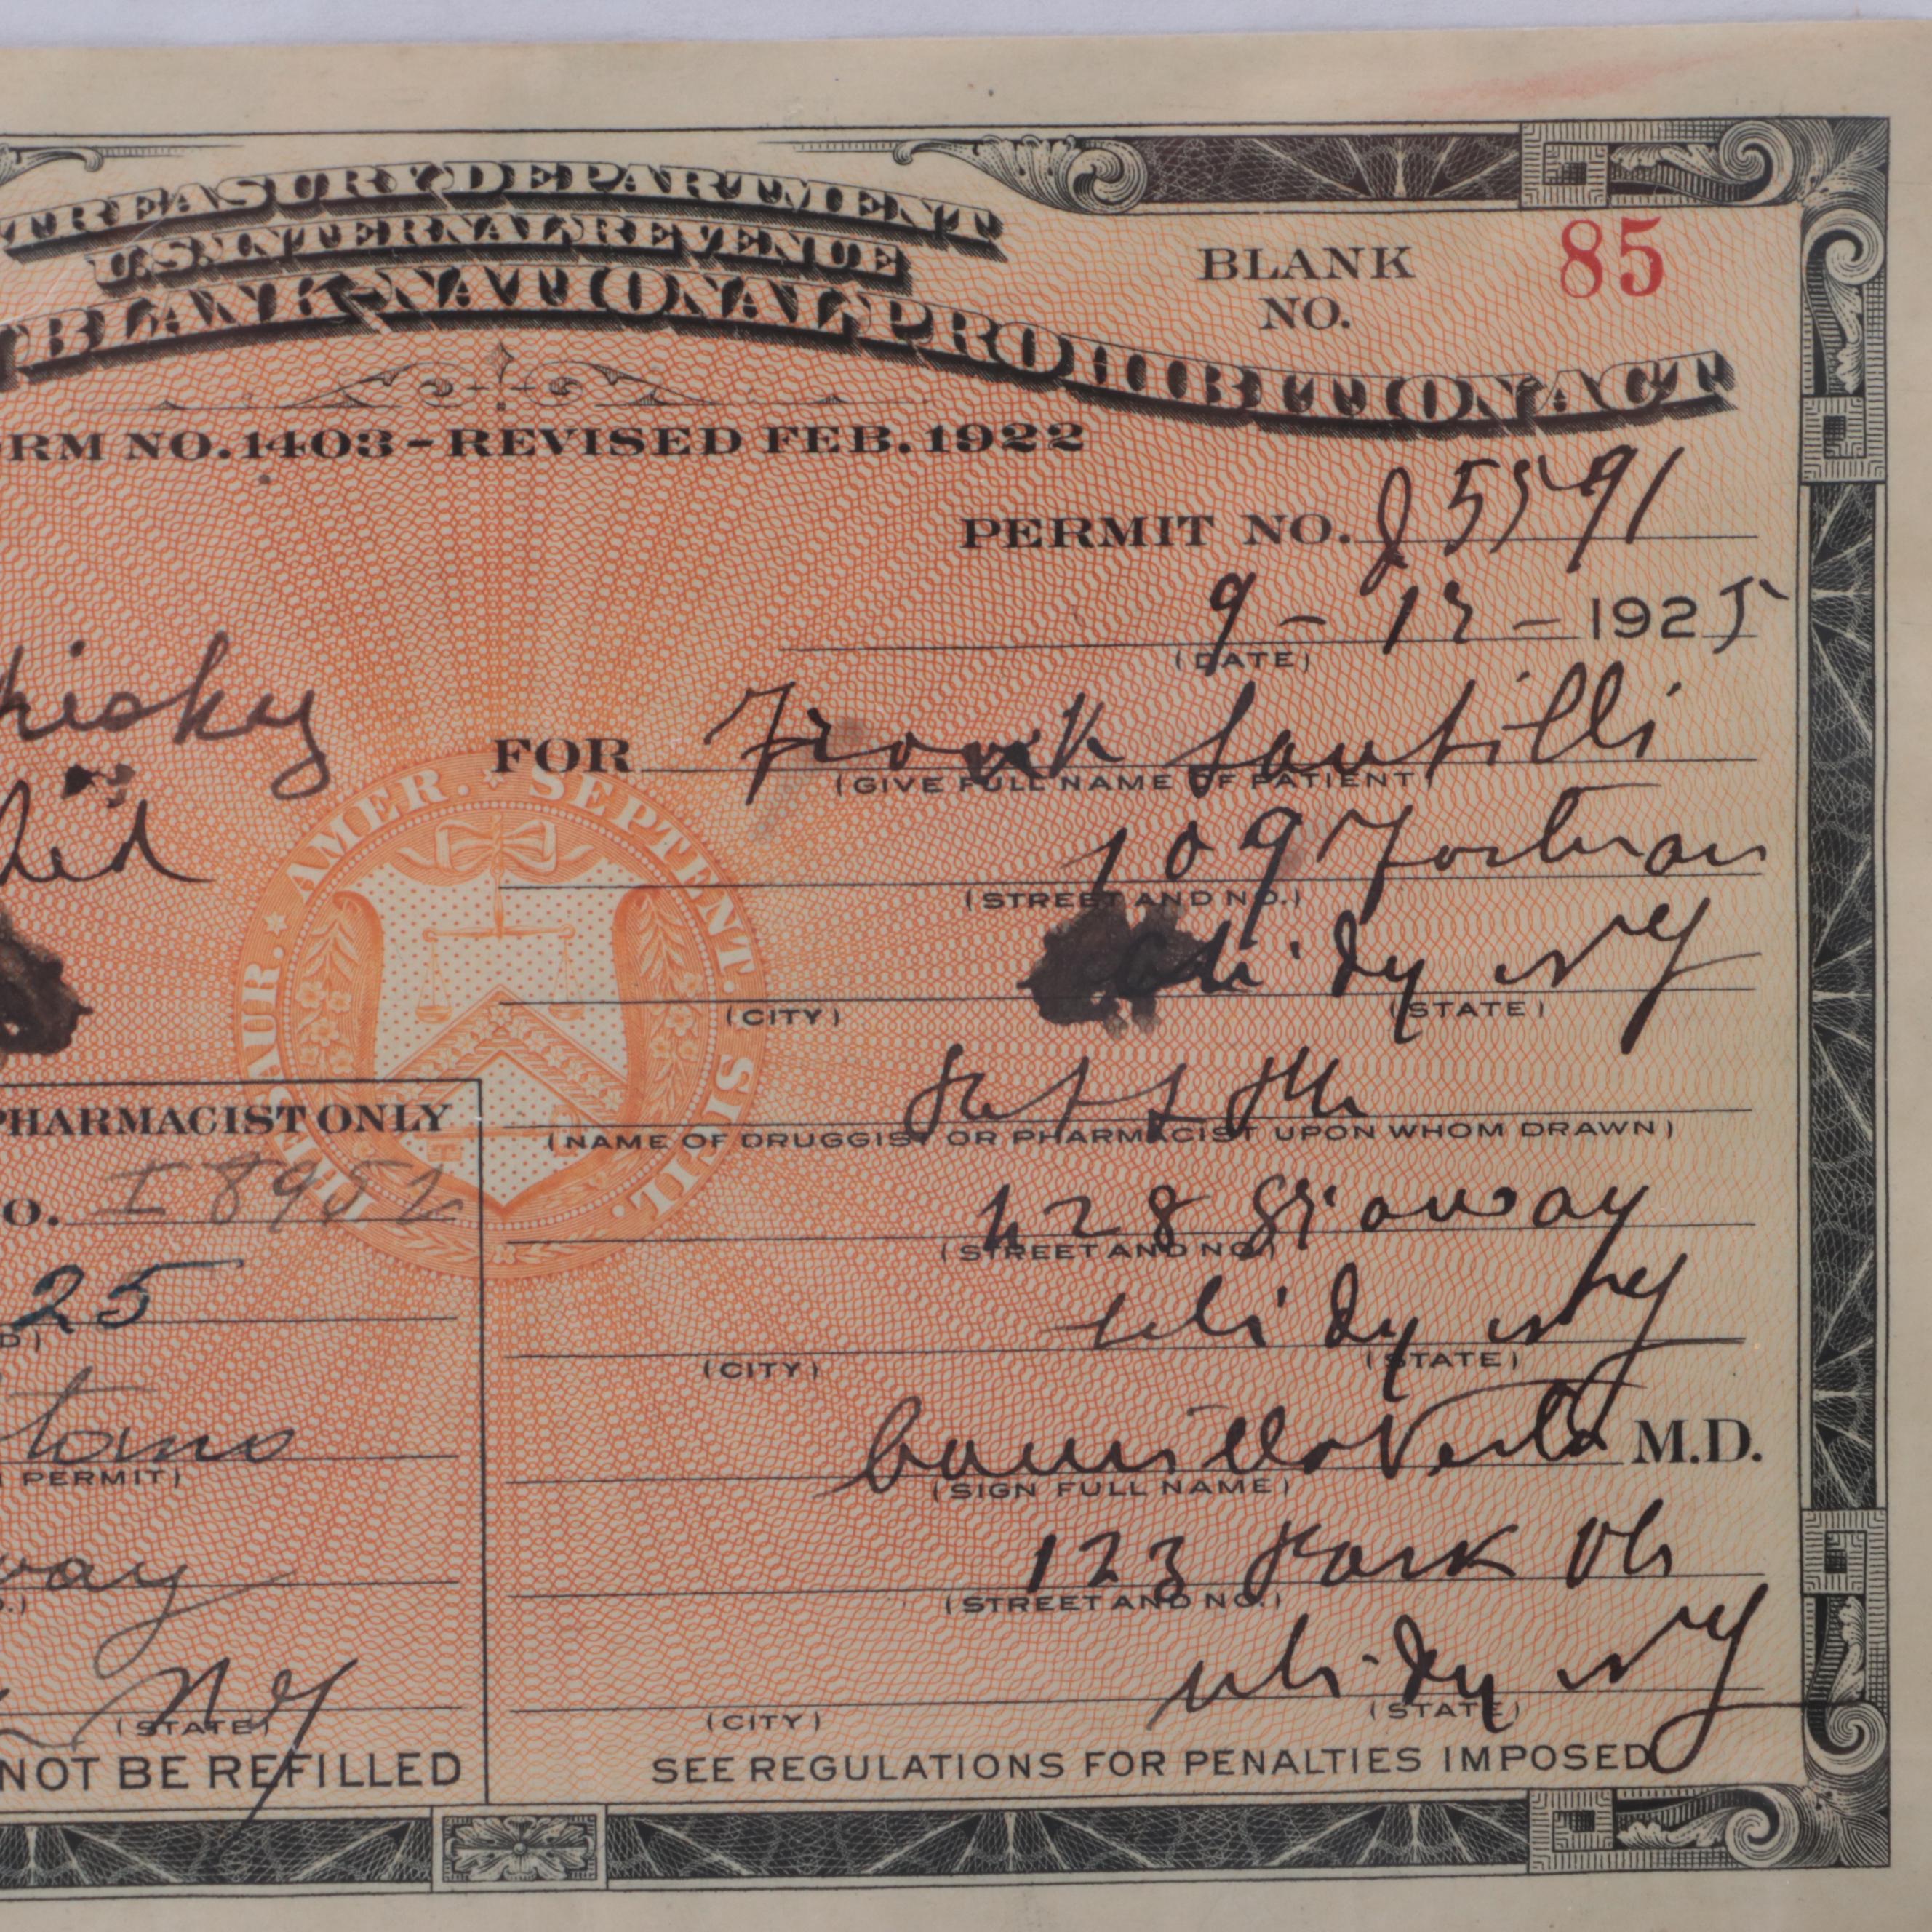 TREASURY DEPARTMENT
U.S. INTERNAL REVENUE
BLANK-NATIONAL PROHIBITION ACT
BLANK NO. 85
RM NO. 1403-REVISED FEB. 1922
PERMIT NO. J5591
9 - 1 - 1925
(DATE)
hisky
FOR Frank Santilli
(GIVE FULL NAME OF PATIENT)
109
(STREET AND NO.)
NY
(CITY) (STATE)
THESAUR. * AMER. * SEPTENT. SIGIL.
(NAME OF DRUGGIST OR PHARMACIST UPON WHOM DRAWN)
PHARMACIST ONLY
O. I 8952
428
(STREET AND NO.)
25
D)
NY
(CITY) (STATE)
Camillo M.D.
(SIGN FULL NAME)
tano
PERMIT)
123 Park
(STREET AND NO.)
way
.)
NY
(CITY) (STATE)
NY
(STATE)
NOT BE REFILLED
SEE REGULATIONS FOR PENALTIES IMPOSED